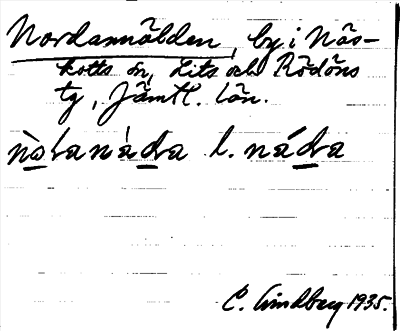 Nordannälden, by i Näs-
kotts sn, Lits och Rödöns
tg, Jämtl. län.
nòlanàda l. náda
C. Lindberg 1935.